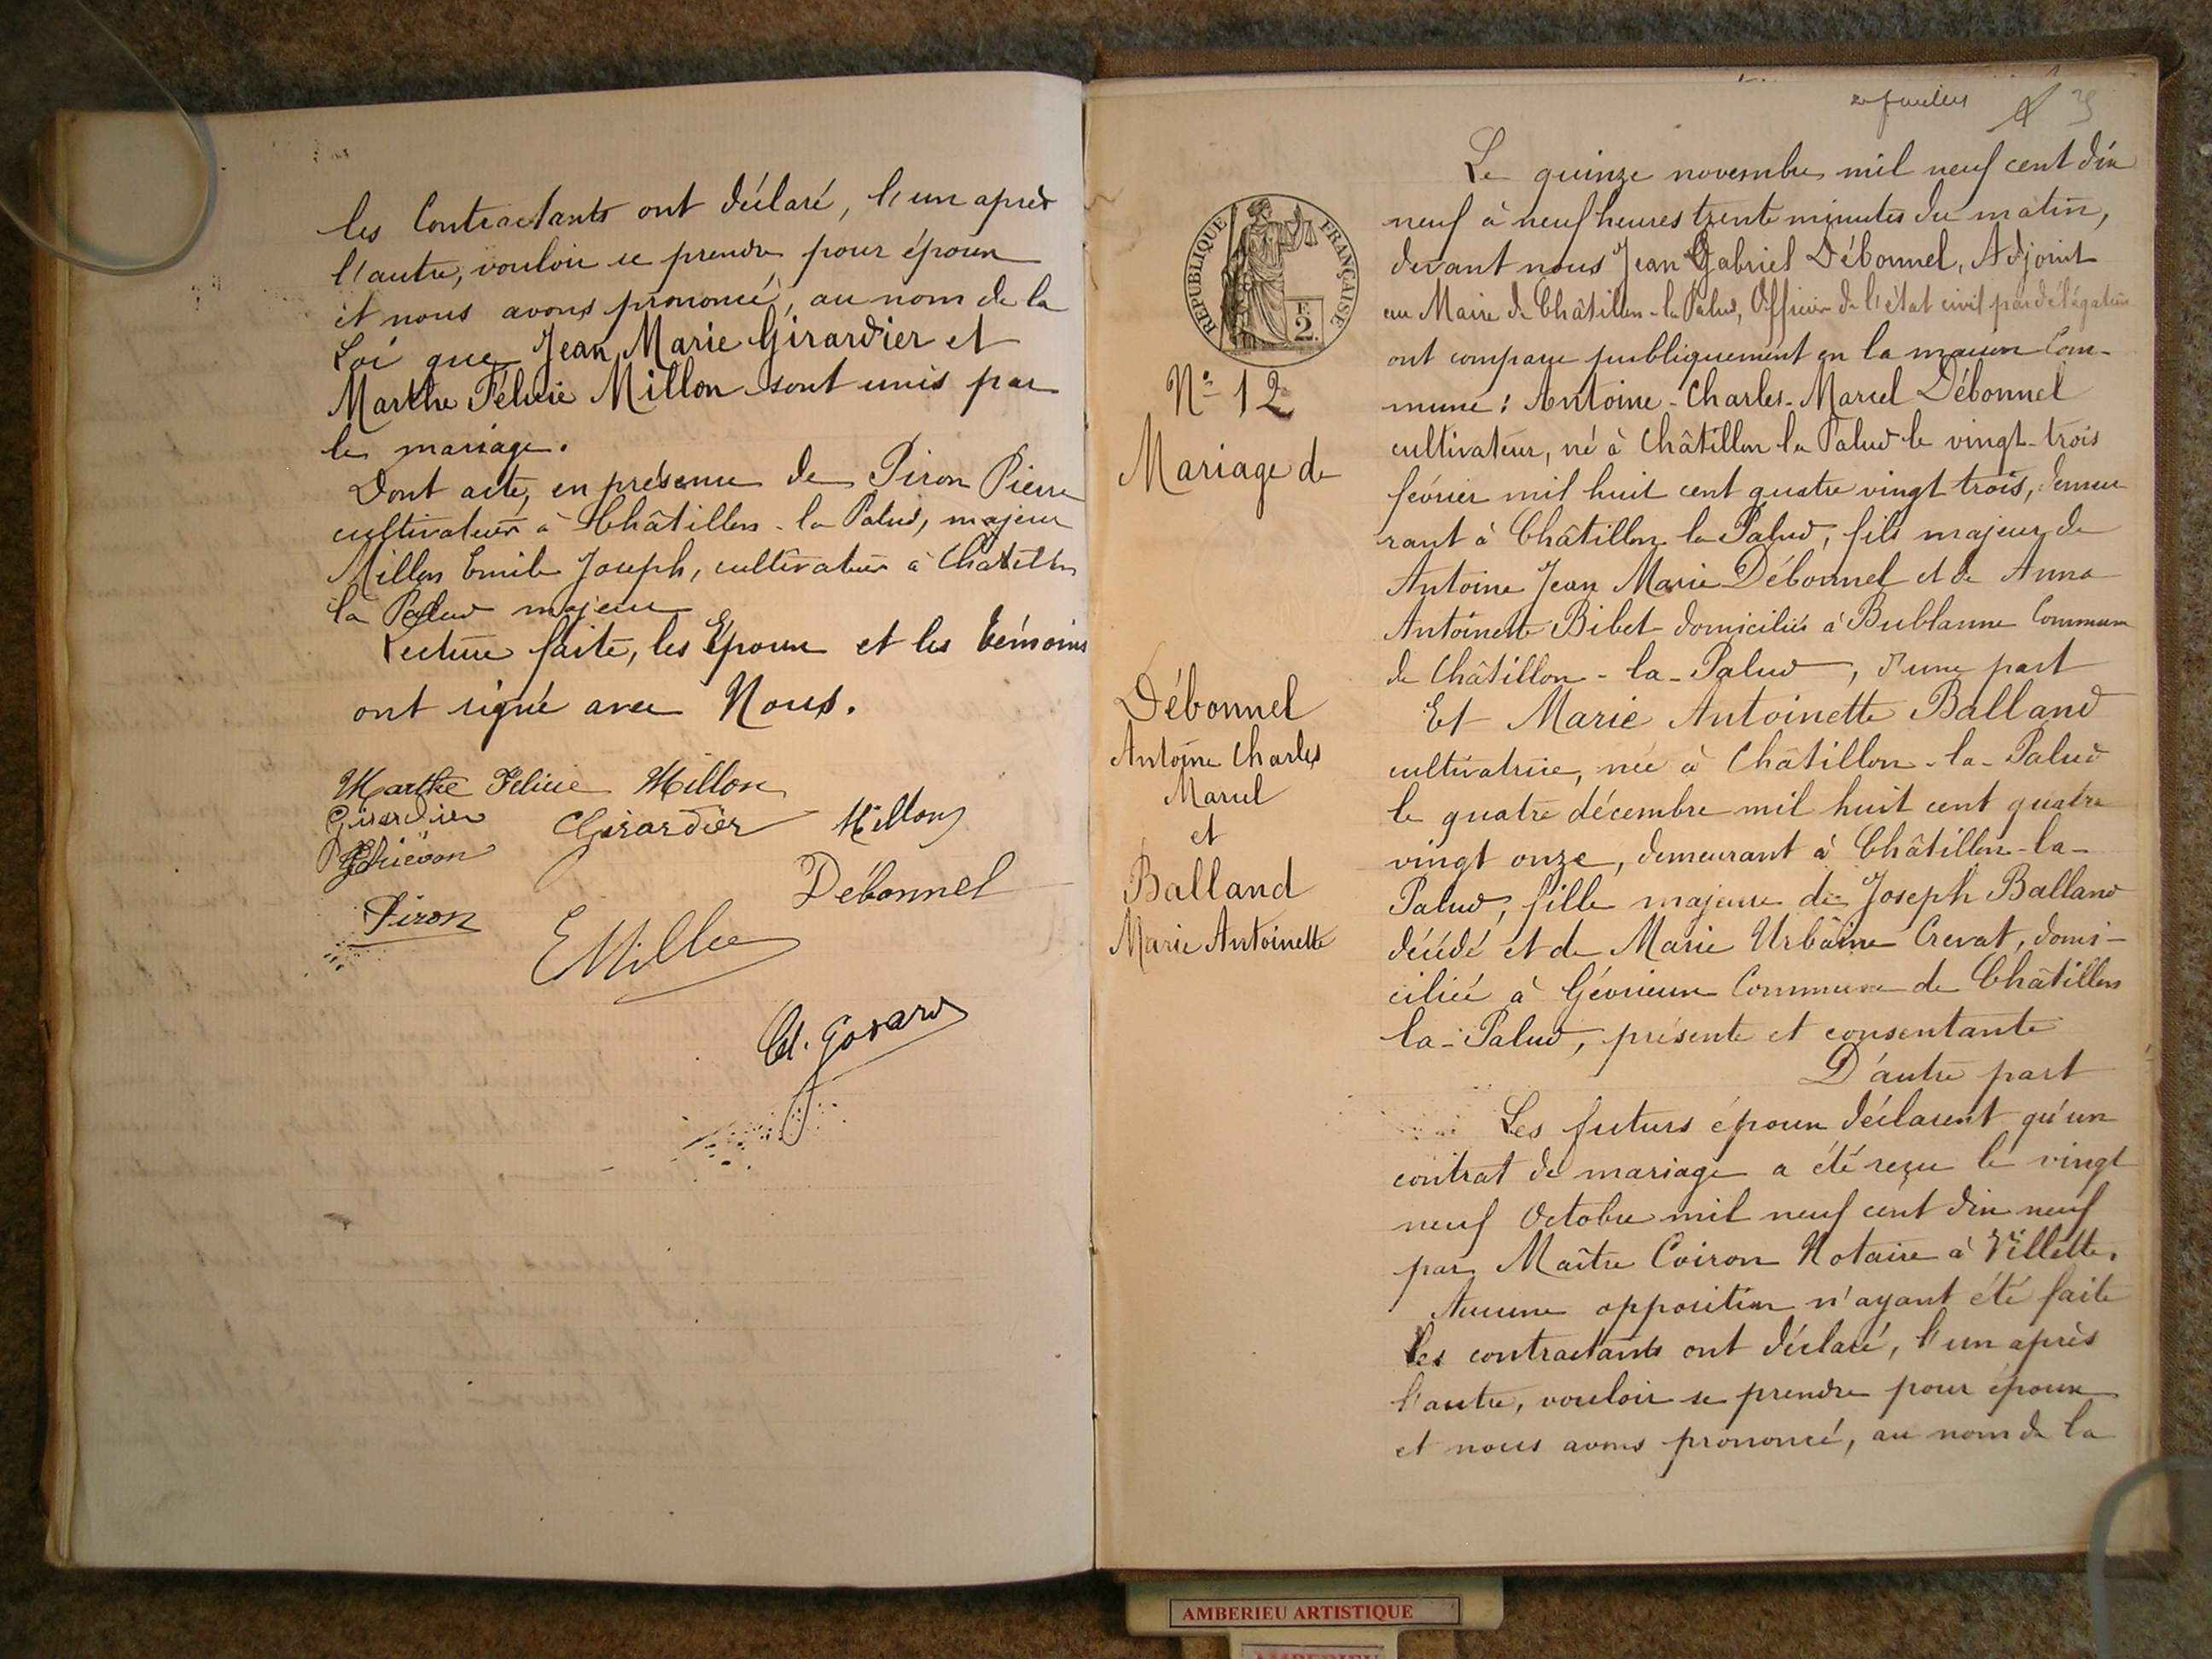 les Contractants ont déclaré, l'un après
l'autre, vouloir se prendre pour époux
et nous avons prononcé, au nom de la
Loi que Jean Marie Girardier et
Marthe Félicie Millon sont unis par
le mariage.
Dont acte, en présence de Piron Pierre
cultivateur à Châtillon-la Palud, majeur
Millon Emile Joseph, cultivateur à Chatillon
la Palud majeur
Lecture faite, les Epoux et les témoins
ont signé avec Nous.
Marthe Felicie Millon
Girardier Girardier Millon
Débonnel
Piron
Cl. Godard
2 feuillet
RÉPUBLIQUE FRANÇAISE
F.
2.
N° 12
Mariage de
Débonnel
Antoine Charles
Marcel
et
Balland
Marie Antoinette
Le quinze novembre mil neuf cent dix
neuf à neuf heures trente minutes du matin,
devant nous Jean Gabriel Débonnel, Adjoint
au Maire de Châtillon-la Palud, Officier de l'état civil par délégation
ont comparu publiquement en la maison Com-
mune : Antoine-Charles-Marcel Débonnel
cultivateur, né à Châtillon la Palud le vingt-trois
février mil huit cent quatre vingt trois, demeu
rant à Châtillon la Palud, fils majeur de
Antoine Jean Marie Débonnel et de Anna
Antoinette Bibet domiciliés à Bublanne Commune
de Châtillon-la-Palud, d'une part
Et Marie Antoinette Balland
cultivatrice, née à Châtillon-la-Palud
le quatre décembre mil huit cent quatre
vingt onze, demeurant à Châtillon-la-
Palud, fille majeure de Joseph Balland
décédé et de Marie Urbaine Crevat, domi-
ciliée à Gévrieux Commune de Châtillon
la-Palud, présente et consentante
D'autre part
Les futurs époux déclarent qu'un
contrat de mariage a été reçu le vingt
neuf Octobre mil neuf cent dix neuf
par Maître Coiron Notaire à Villette.
Aucune opposition n'ayant été faite
les contractants ont déclaré, l'un après
l'autre, vouloir se prendre pour époux
et nous avons prononcé, au nom de la
AMBERIEU ARTISTIQUE
AMBERIEU